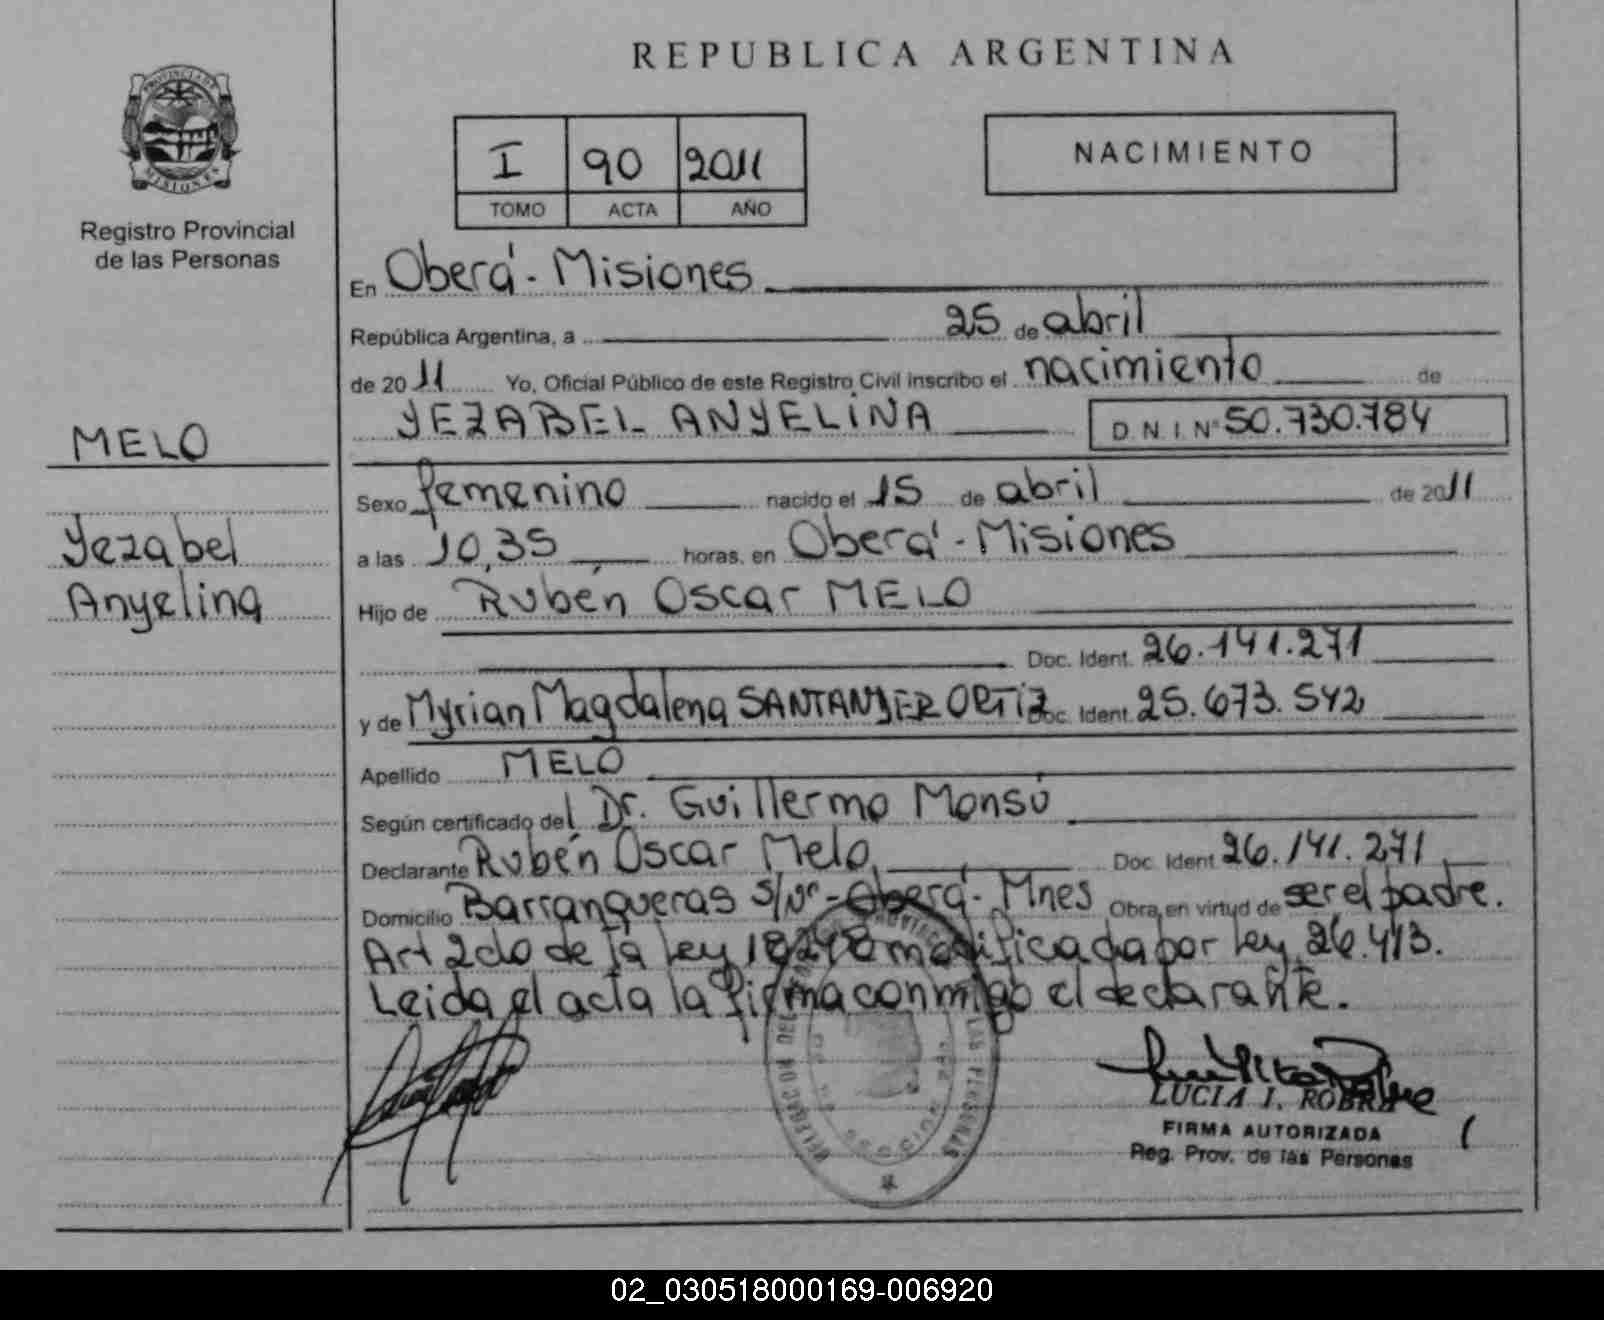 REPUBLICA ARGENTINA
PROVINCIA DE
MISIONES
Registro Provincial
de las Personas
I 90 2011
TOMO ACTA AÑO
NACIMIENTO
MELO
Yezabel
Anyelina
En Oberá - Misiones
República Argentina, a 25 de abril
de 2011 Yo, Oficial Público de este Registro Civil inscribo el nacimiento de
YEZABEL ANYELINA D.N.I. Nº 50.730.784
Sexo femenino nacido el 15 de abril de 2011
a las 10,35 horas, en Oberá - Misiones
Hijo de Rubén Oscar MELO
Doc. Ident. 26.141.271
y de Myrian Magdalena SANTANDER ORTIZ Doc. Ident. 25.673.542
Apellido MELO
Según certificado del Dr. Guillermo Monsú
Declarante Rubén Oscar Melo Doc. Ident. 26.141.271
Domicilio Barranqueras S/Nº - Oberá - Mnes Obra en virtud de ser el padre.
Art 2do de la Ley 18248 modificada por Ley 26.413.
Leida el acta la firma conmigo el declarante.
DELEGACION DEL LAS PERSONAS
LUCIA I.
FIRMA AUTORIZADA
Reg. Prov. de las Personas
02_030518000169-006920